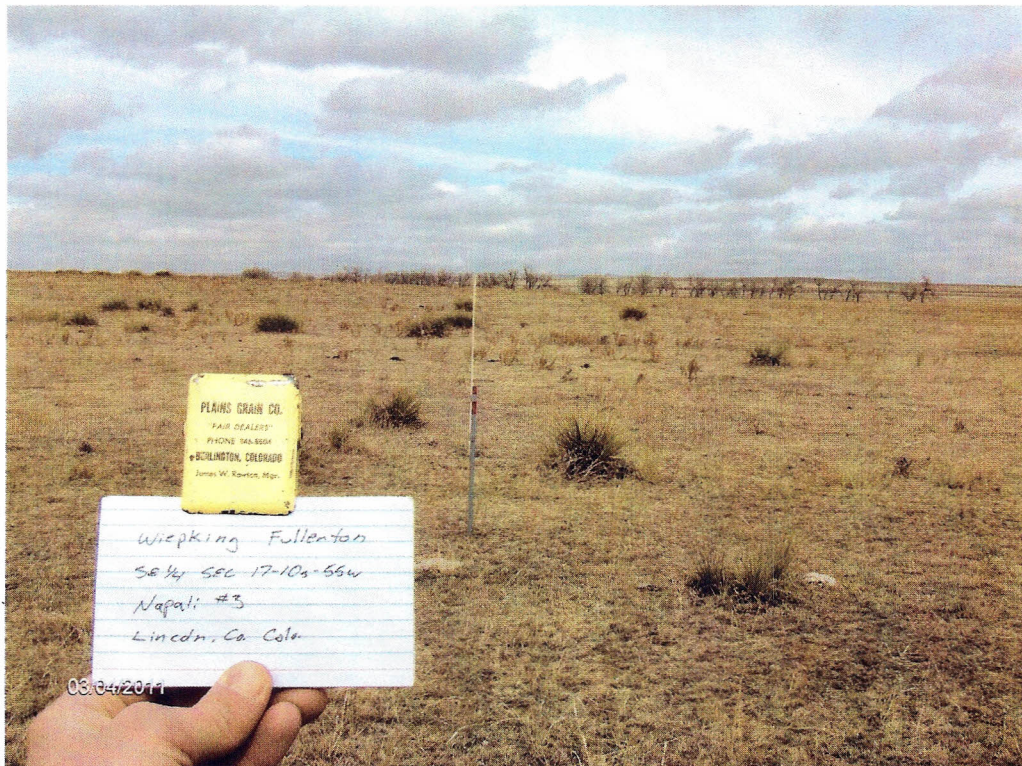 PLAINS GRAIN CO.
"FAIR DEALERS"
PHONE 346-8504
BURLINGTON, COLORADO
James W. Rawson, Mgr.
Wiepking Fullerton
SE 1/4 SEC 17-10s-55w
Napali #3
Lincoln, Co. Colo.
03/04/2011